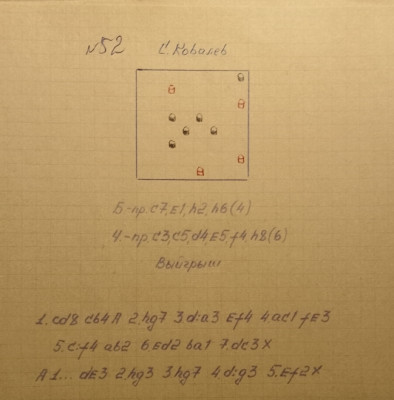 №52 С. Ковалев
Б.-пр. c7, E1, h2, h6 (4)
Ч.-пр. c3, c5, d4, E5, f4, h8 (6)
Выйгрыш
1. cd8 cb4 A 2. hg7 3. d:a3 Ef4 4. ac1 fE3
5. c:f4 ab2 6. Ed2 ba1 7. dc3 X
A 1... dE3 2. hg3 3. hg7 4. d:g3 5. Ef2 X